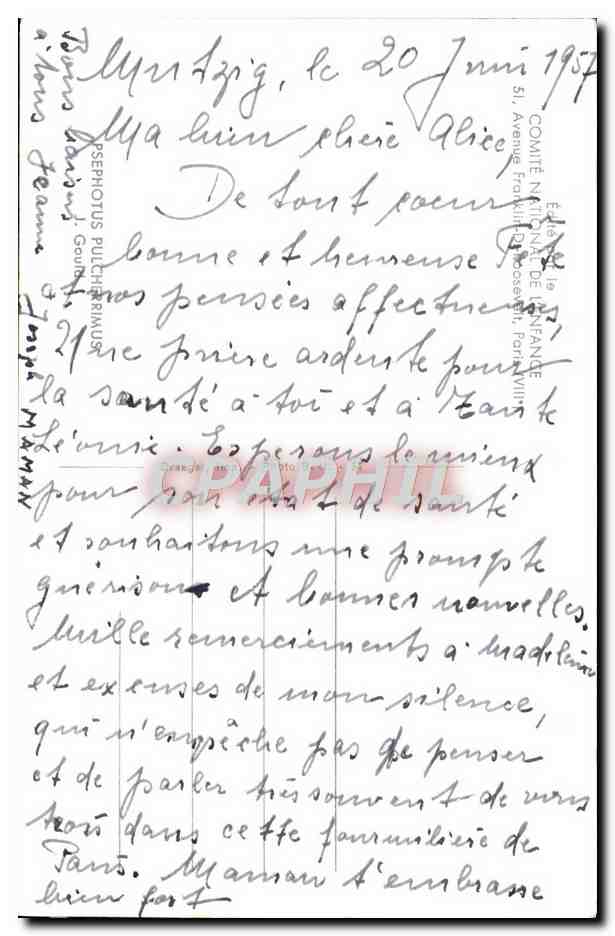 Mutzig, le 20 Juin 1957
Ma bien chère Alice,
De tout coeur
bonne et heureuse Fête
et nos pensées affectueuses,
Une prière ardente pour
la santé à toi et à Tante
Léonie. Esperons le mieux
pour son état de santé
et souhaitons une prompte
guérison et bonnes nouvelles.
Mille remerciements à Madeleine
et excuses de mon silence,
qui n'empêche pas de penser
et de parler très souvent de vous
trois dans cette fourmilière de
Paris. Maman t'embrasse
bien fort
Bons baisers
à tous Jeanne et
Joseph MAMAN
PSEPHOTUS PULCHERRIMUS
J. Gould
Édité par le
COMITÉ NATIONAL DE L'ENFANCE
51, Avenue Franklin-D.-Roosevelt, Paris (VIII
Photo
CPAPHIL